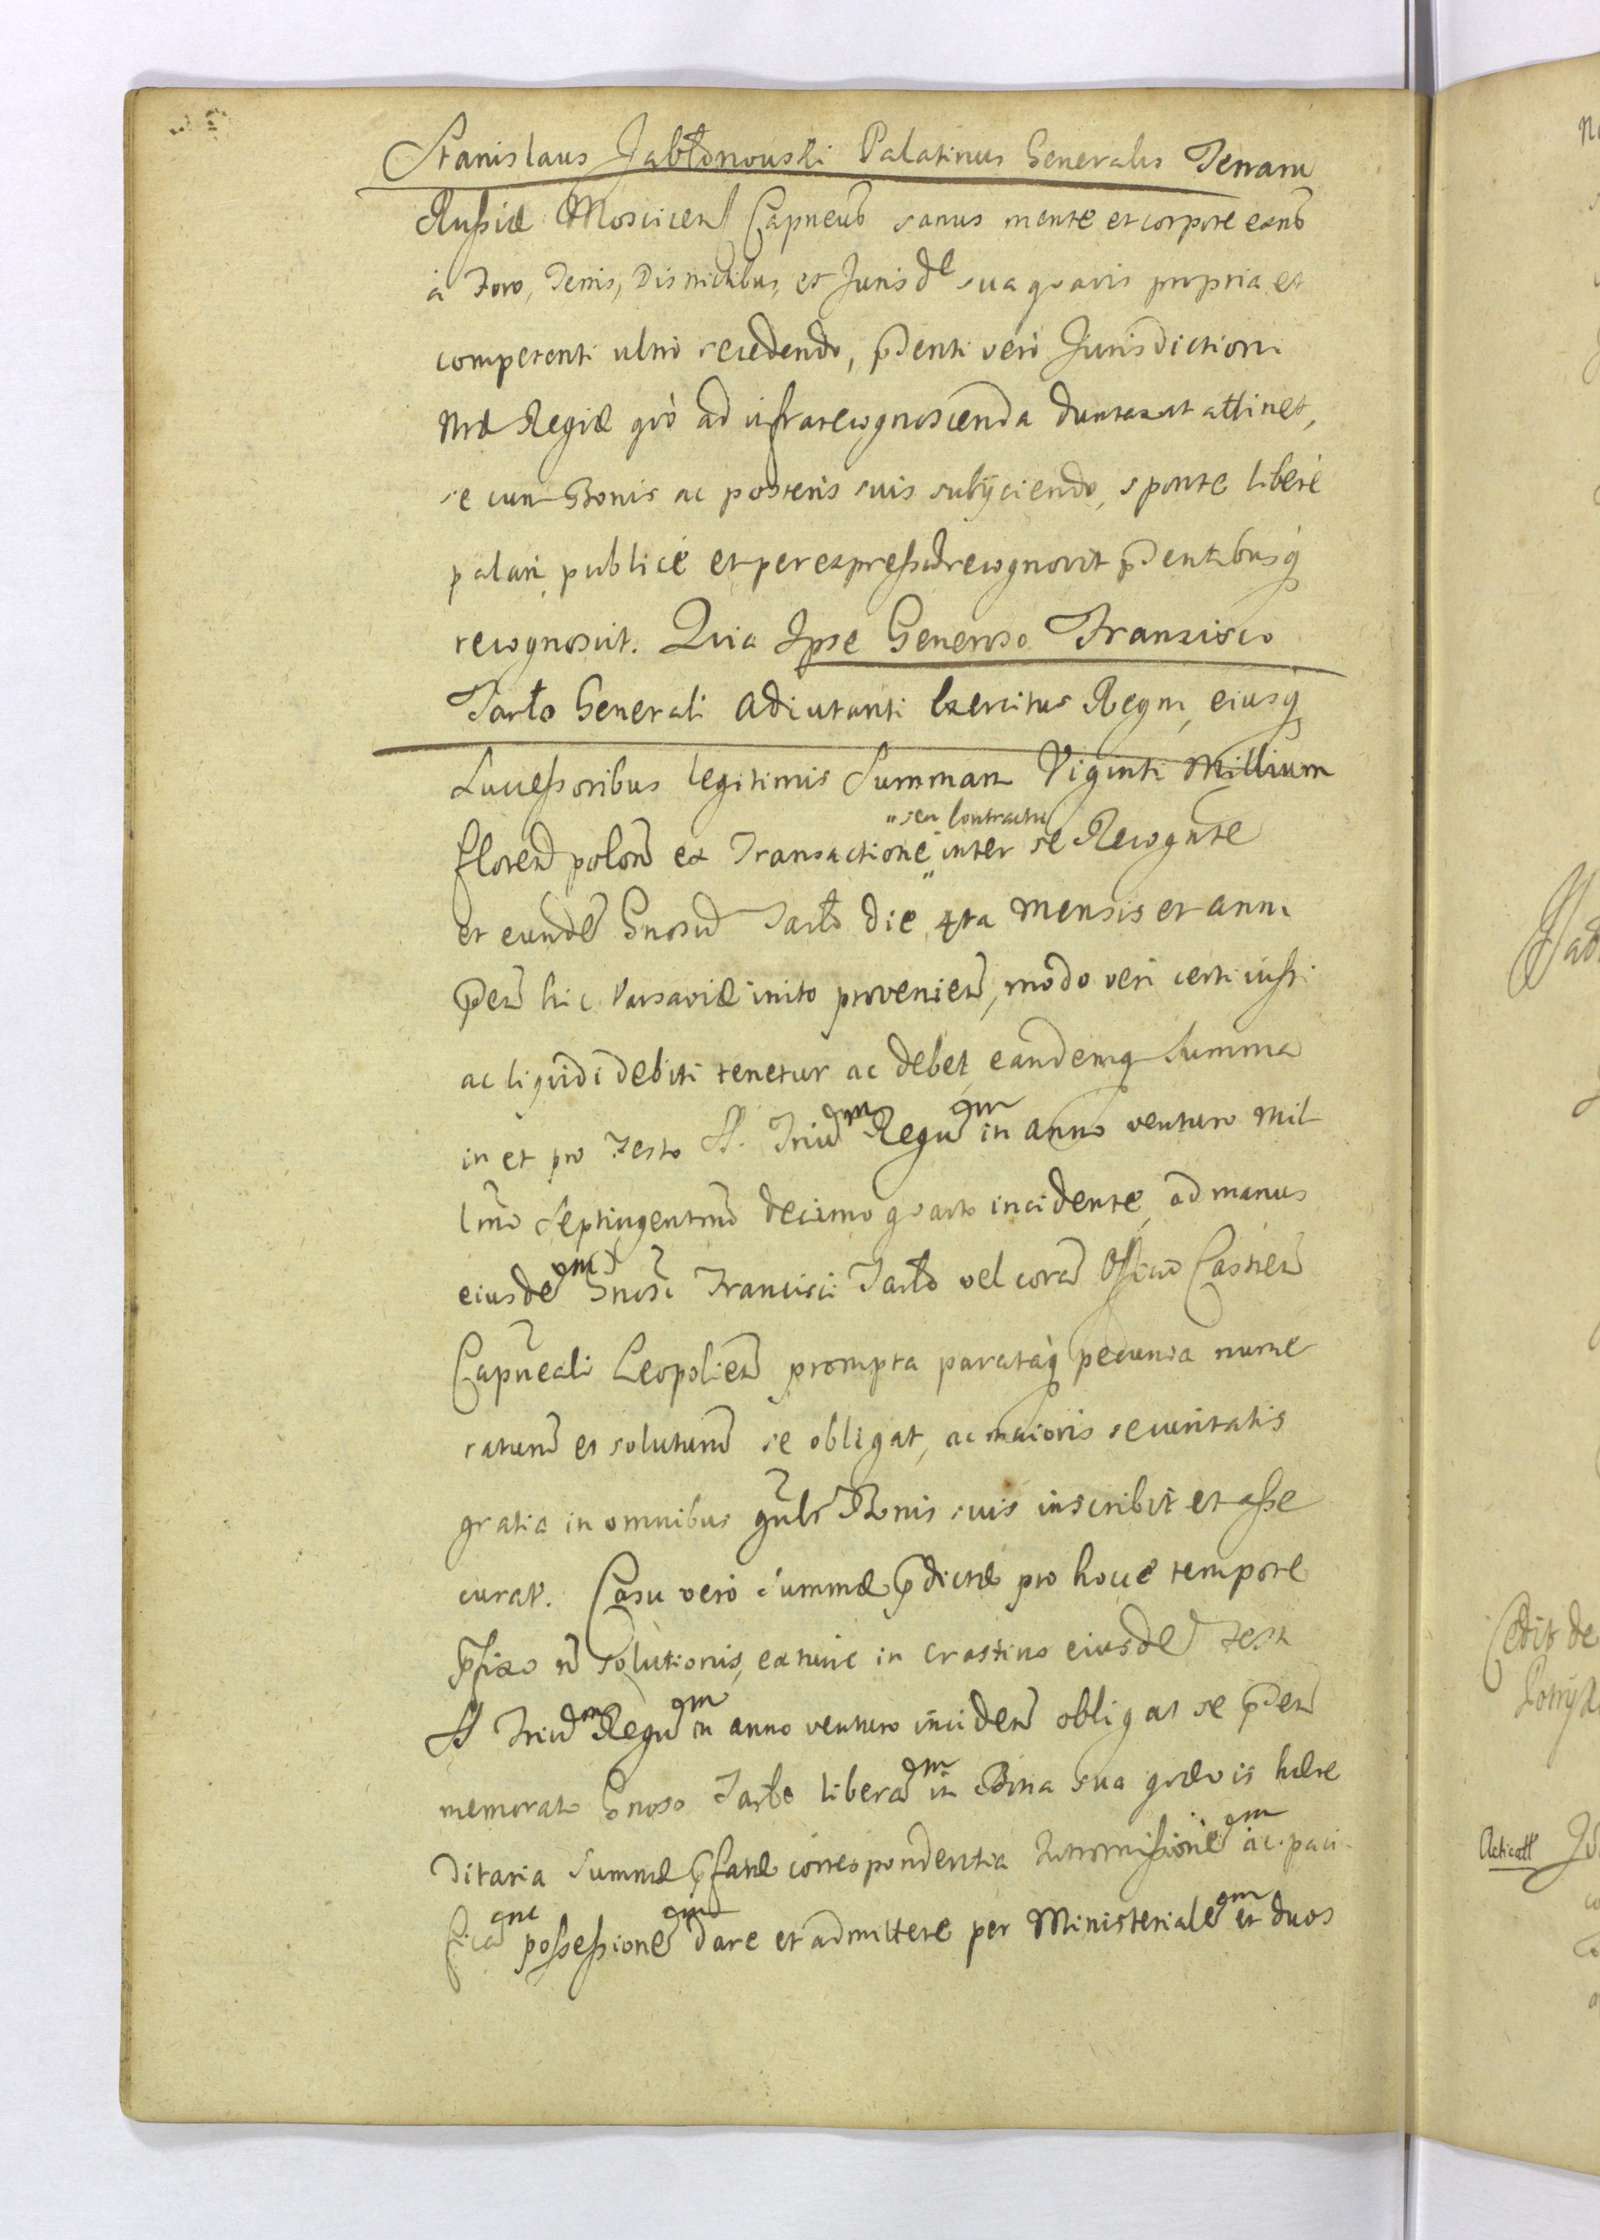 Stanislaus Jabłonowski Palatinus Generalis Terrarum
Russiæ Moscicen Capneus sanus mente et corpore exns
à Foro, Terris, Districtibus, et Jurisdne sua quavis propria et
competenti ultrò recedendo, pñti verò Jurisdictioni
Nræ Regiæ quò ad infrarecognoscenda duntaxat attinet,
se cum Bonis ac posteris suis subijciendo, sponte liberè
palàm publicè et per expressum recognovit pñtibusq
recognoscit. Quia Ipse Generoso Francisco
Tarło Generali Adiutanti Exercitus Regni, eiusq
Successoribus legitimis Summam Viginti Millium
floren polon ex Transactione
seu Contractu
inter se Recognte
et eundē Gnosum Tarło die 4ta Mensis et anni
pñ hic Varsaviæ inito provenien, modo veri certi iusti
ac liquidi debiti tenetur ac debet, eandemq Summa
in et pro Festo SS. Trium Regum in anno venturo Mil
lmo Septingentmo decimo quarto incidente, ad manus
eiusdem Gnosi Francisci Tarło vel coram Offcio Castren
Capneali Leopolien prompta parataq pecunia nume
raturum et soluturum se obligat, ac maioris securitatis
gratia in omnibus gnlr Bonis suis inscribit et asse
curat. Casu verò summæ pdictæ pro hocce tempore
pfixo n solutionis, extunc in crastino eiusdem Festi
SS Trium Regum in anno venturo inciden obligat se pñ
memorato Gnoso Tarło liberam in Bona sua quævis hære
ditaria summæ pfatæ correspondentia Intromissionem ac paci
ficam possessionem dare et admittere per Ministerialem et duos
Cedit de
Acticatt